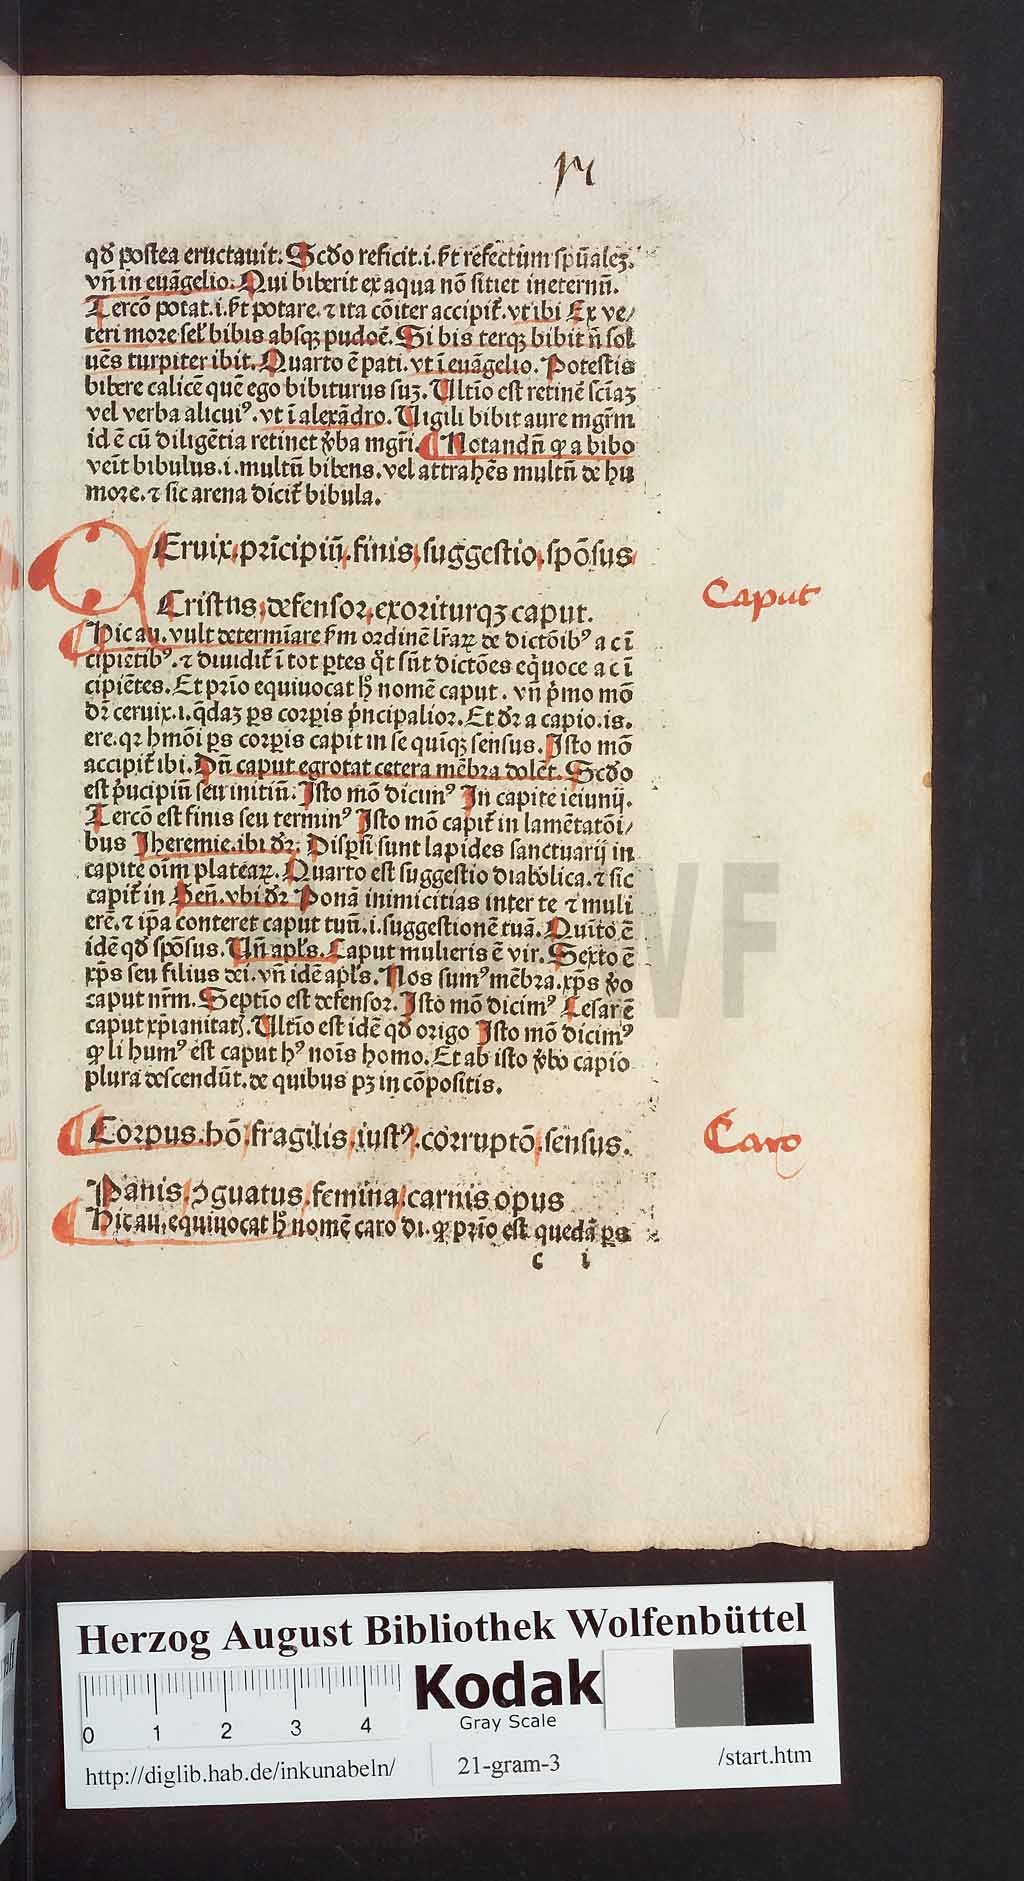 17
qđ postea eructauit. Scđo reficit.i. fit refectum spũalez.
vñ in euãgelio. Qui biberit ex aqua nõ sitiet ineternũ.
Tercõ potat.i. fit potare. ⁊ ita cõiter accipit̃. vt ibi Ex ve/
teri more sel̃ bibis absqꝫ pudoẽ. Si bis terqꝫ bibit ñ sol
uẽs turpiter ibit. Quarto ẽ pati. vt ĩ euãgelio. Potestis
bibere calicẽ quẽ ego bibiturus suꝫ. Ultĩo est retinẽ sciãꝫ
vel verba alicuiꝰ. vt ĩ alexãdro. Uigili bibit aure mgr̃m
id ẽ cũ diligẽtia retinet v̾ba mgr̃i. ¶ Notandũ ꝙ a bibo
veit̃ bibulus.i. multũ bibens. vel attrahẽs multũ de hu
more. ⁊ sic arena dicit̃ bibula.
CEruix, pr̃icipiũ. finis, suggestio, spõsus
Cristus, defensor, exoriturqꝫ caput.
Caput
¶ Hic au. vult determĩare ẜm ordinẽ lr̃aꝝ de dictõibꝰ a c ĩ
cipiẽtibꝰ. ⁊ diuidit̃ ĩ tot ꝑtes q̊t sũt dictões eq̃uoce a c ĩ
cipiẽtes. Et pr̃io equiuocat h̊ nomẽ caput. vñ p̾mo mõ
dr̃ ceruix.i. q̃daꝫ ꝑs corꝑis p̾ncipalior. Et dr̃ a capio.is.
ere. qꝛ hmõi ꝑs corꝑis capit in se quĩqꝫ sensus. Isto mõ
accipit̃ ibi. Dũ caput egrotat cetera mẽbra dolẽt. Scđo
est p̾ucipiũ seu initiũ. Isto mõ dicimꝰ In capite ieiunij.
Tercõ est finis seu terminꝰ Isto mõ capit̃ in lamẽtatõi/
bus Jheremie. ibi dr̃. Disp̱si sunt lapides sanctuarij in
capite oĩm plateaꝝ. Quarto est suggestio diabolica. ⁊ sic
capit̃ in Geñ. vbi dr̃ Ponã inimicitias inter te ⁊ muli
erẽ. ⁊ ip̃a conteret caput tuũ.i. suggestionẽ tuã. Quĩto ẽ
idẽ qđ spõsus. Uñ apl̃s. Caput mulieris ẽ vir. Sexto ẽ
xp̃s seu filius dei. vñ idẽ apl̃s. Nos sumꝰ mẽbra. xp̃s v̾o
caput nr̃m. Septĩo est defensor. Isto mõ dicimꝰ Cesar ẽ
caput xp̃ianitatꝭ. Ultĩo est idẽ qđ origo Isto mõ dicimꝰ
ꝙ li humꝰ est caput hꝰ noĩs homo. Et ab isto v̾bo capio
plura descendũt. de quibus pꝫ in cõpositis.
¶ Corpus. hõ, fragilis, iustꝰ, corruptõ, sensus.
Caro
Panis, ꝯguatus, femina, carnis opus
¶ Hic au. equiuocat h̊ nomẽ caro di. ꝙ pr̃io est quedã ꝑs
c i
HWF
Herzog August Bibliothek Wolfenbüttel
0 1 2 3 4
Kodak
Gray Scale
http://diglib.hab.de/inkunabeln/ 21-gram-3 /start.htm